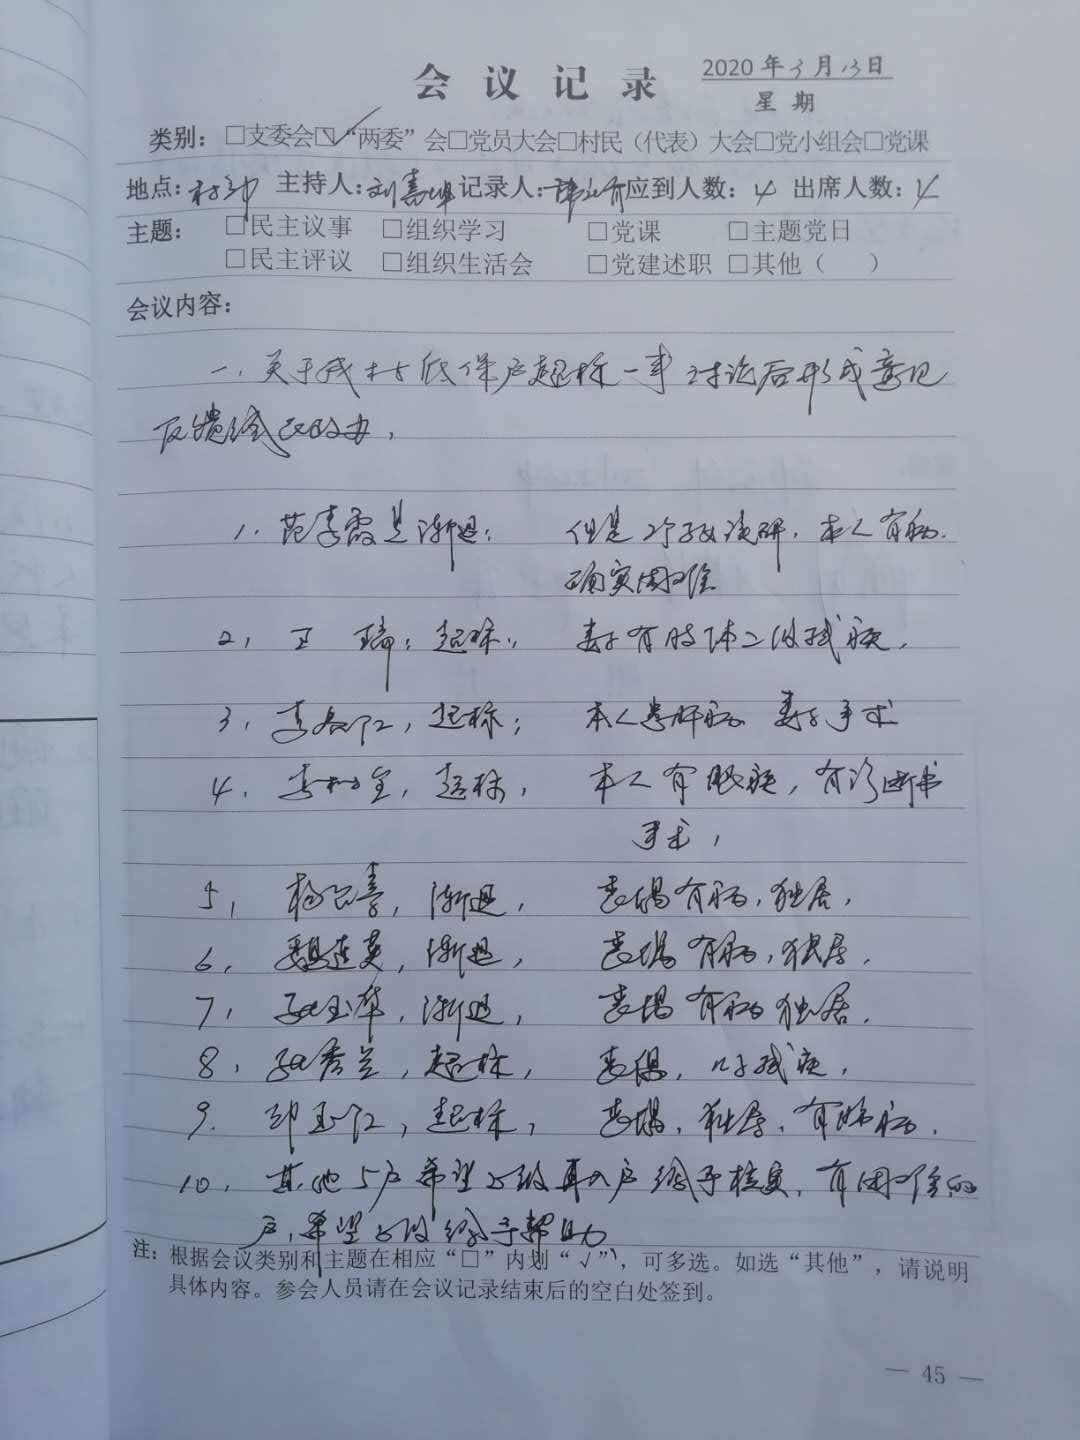 会 议 记 录 2020 年 3 月 13 日
星 期
类别：□支委会☑“两委”会□党员大会□村民（代表）大会□党小组会□党课
地点：村部 主持人：刘 记录人： 应到人数：4 出席人数：4
主题：□民主议事 □组织学习 □党课 □主题党日
□民主评议 □组织生活会 □党建述职 □其他（ ）
会议内容：
一、关于我村低保户超标一事讨论后形成意见
反馈给民政办，
1、范秀霞是渐退； 但是2个子女读研，本人有病.
确实困难
2、王 瑞；超标； 妻子有肢体二级残疾，
3、李 江，超标； 本人患肝病 妻子手术
4、李 全，超标， 本人有眼疾，有诊断书
手术，
5、杨 ，渐退， 丧偶有病，独居，
6、魏连英，渐退， 丧偶有病，独居，
7、孙玉华，渐退， 丧偶有病独居，
8、孙秀兰，超标， 丧偶，儿子残疾，
9. 邹玉江，超标， 丧偶，独居，有肺病.
10、其他5户希望上级再入户给予核实，有困难的
户，希望上级给予帮助
注：根据会议类别和主题在相应“□”内划“√”，可多选。如选“其他”，请说明
具体内容。参会人员请在会议记录结束后的空白处签到。
— 45 —